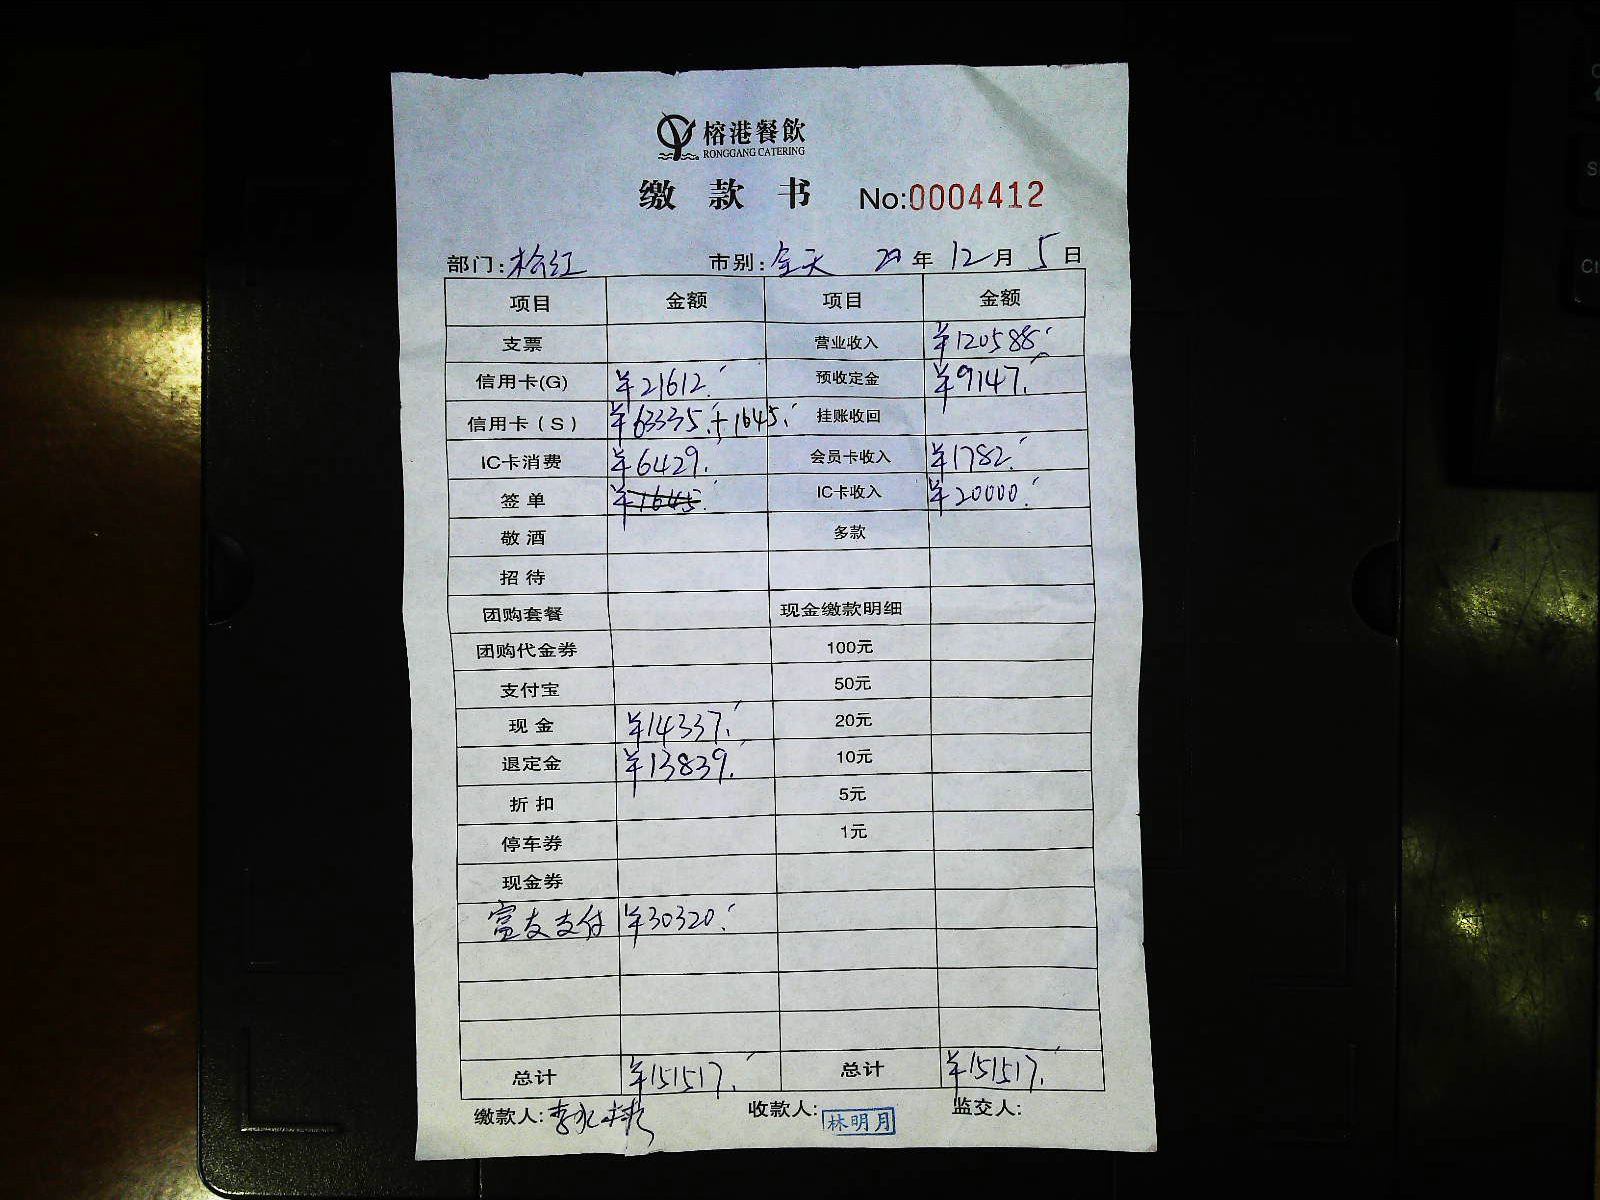 榕港餐飲
RONGGANG CATERING
缴款书 No:0004412
部门:松江 市别:全天 年 12月 5日
项目 金额 项目 金额
支票 营业收入 ¥120588.
信用卡(G) ¥21612. 预收定金 ¥9147.
信用卡(S) ¥63335.+1645. 挂账收回
IC卡消费 ¥6429. 会员卡收入 ¥1782.
签单 ¥1645. IC卡收入 ¥20000.
敬酒 多款
招待
团购套餐 现金缴款明细
团购代金券 100元
支付宝 50元
现金 ¥14337. 20元
退定金 ¥13839. 10元
折扣 5元
停车券 1元
现金券
富友支付 ¥30320.
总计 ¥151517. 总计 ¥151517.
缴款人: 收款人: 林明月 监交人: